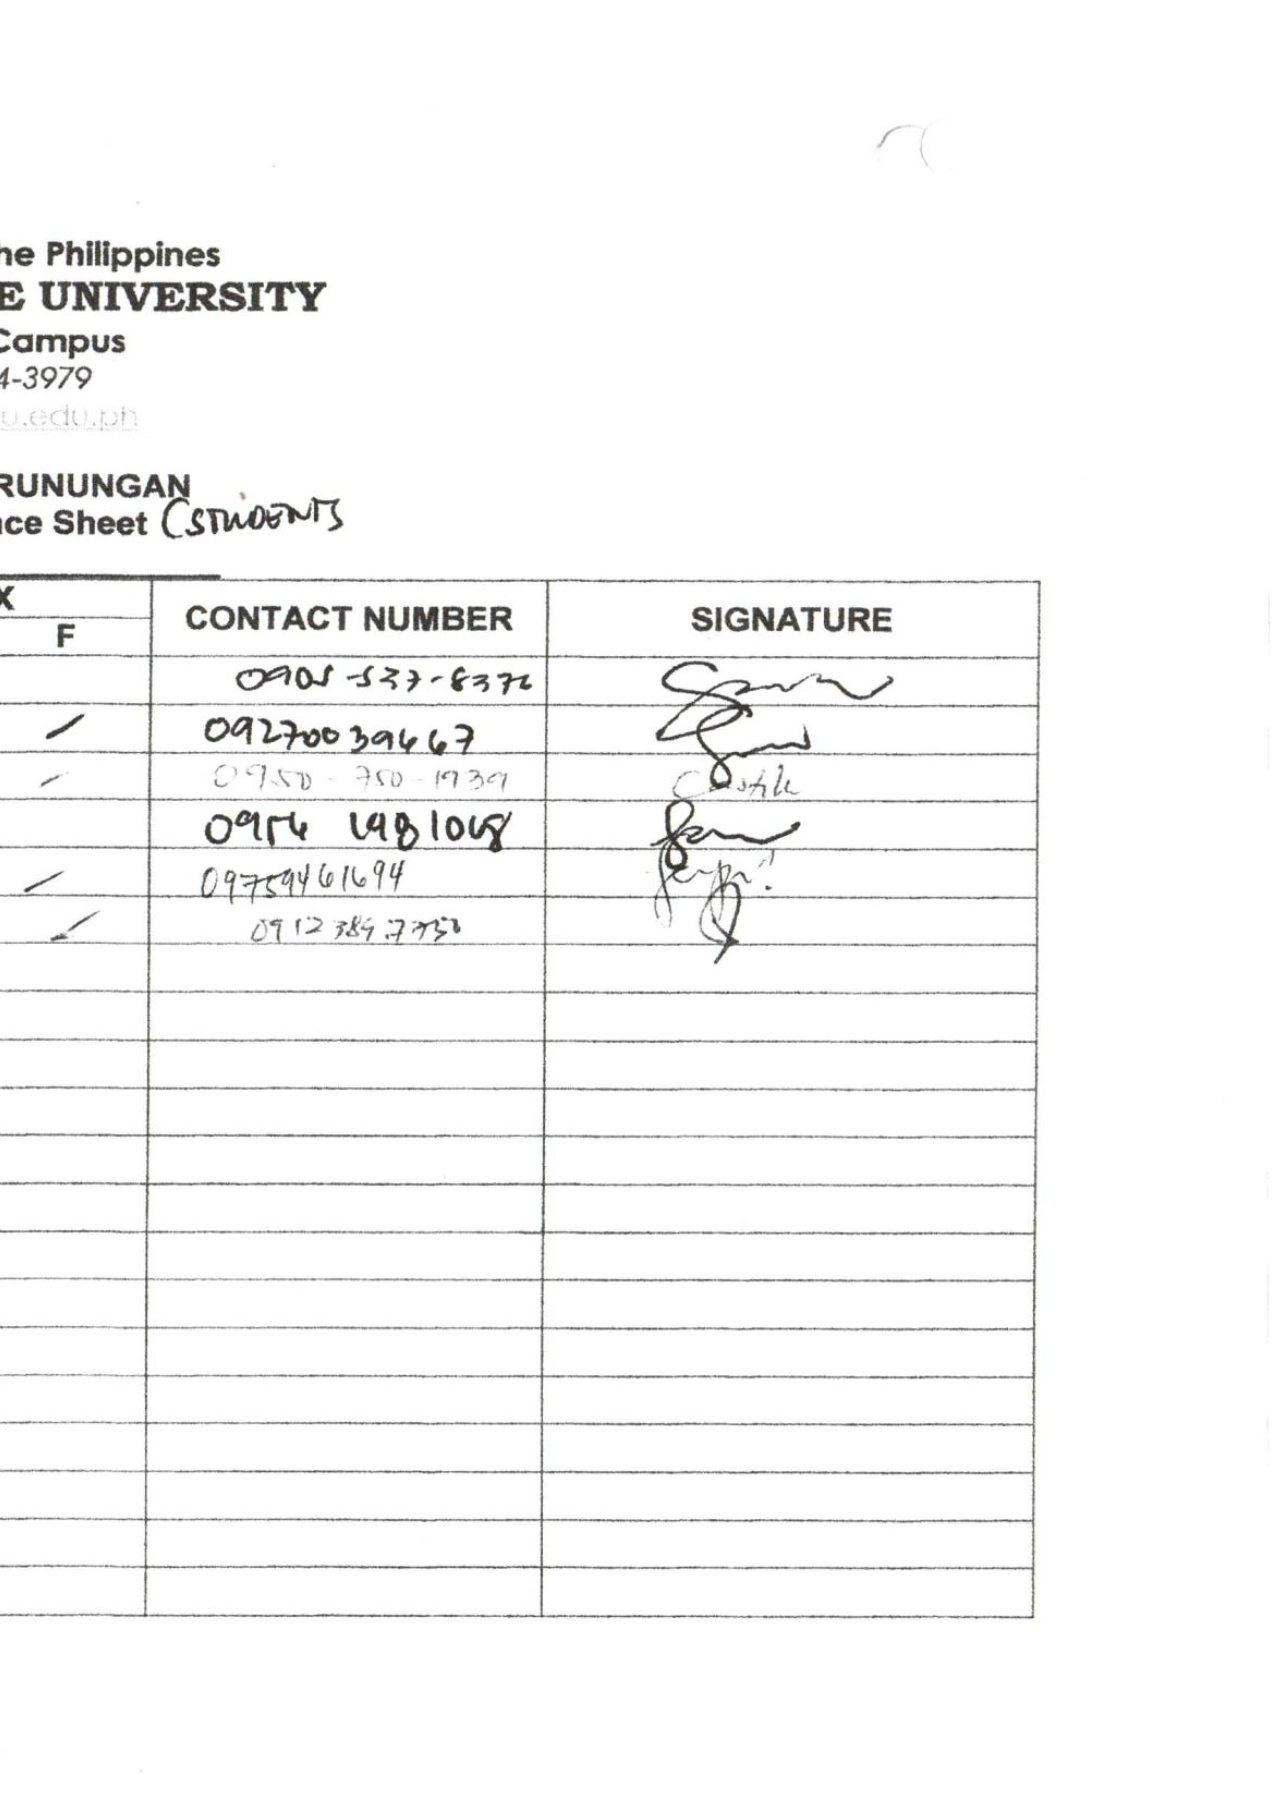 he Philippines
E UNIVERSITY
Campus
4-3979
u.edu.ph
RUNUNGAN
ce Sheet (STUDENTS
X
F CONTACT NUMBER SIGNATURE
0905-537-8372
09270039467
0950-750-1939
09759461694
0912 389 7750